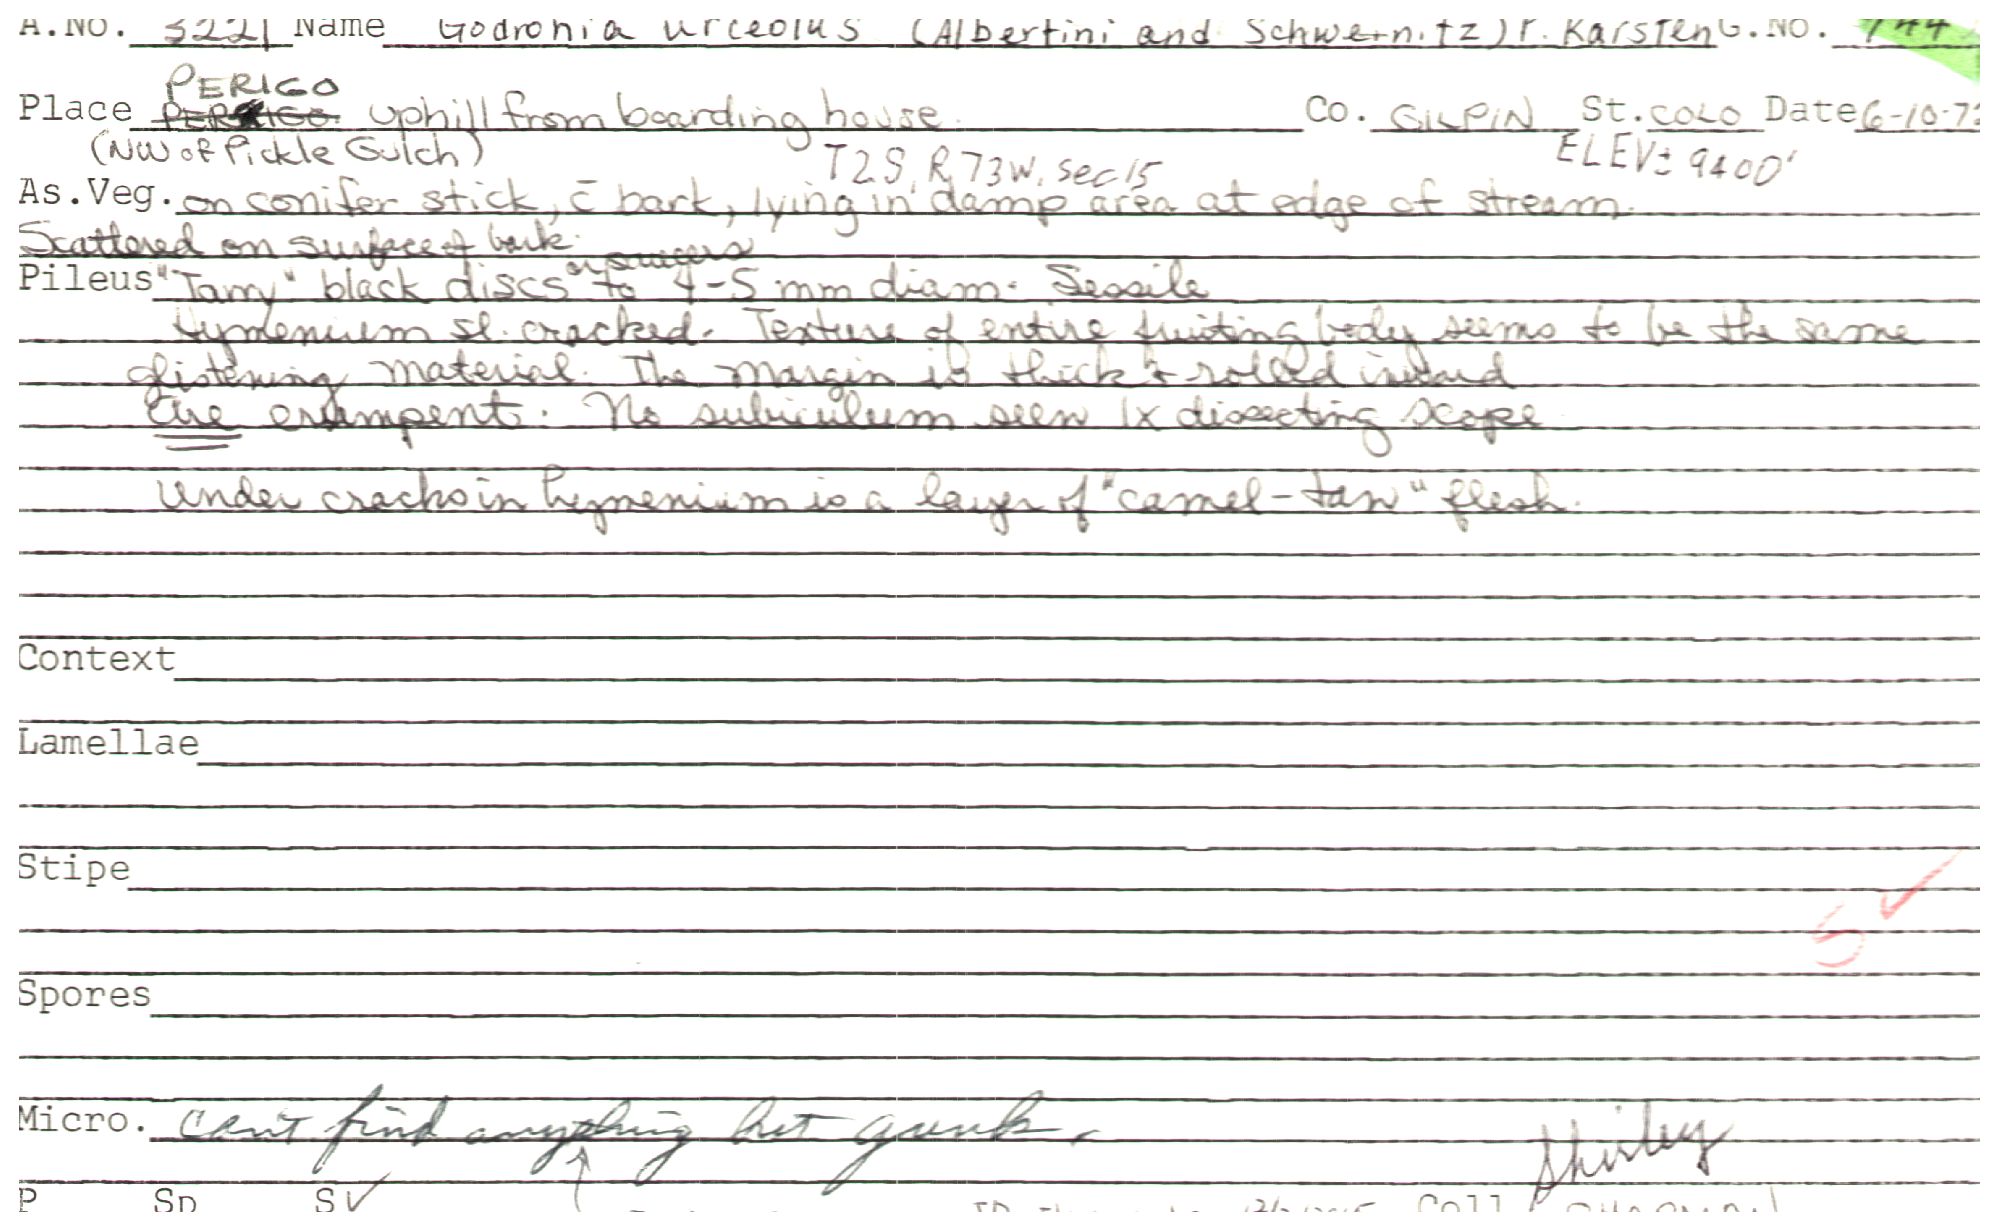 A.NO. 3221 Name Godronia urceolus (Albertini and Schwernitz) P. Karsten G.NO. 744
PERIGO
Place PERIGO uphill from boarding house Co. GILPIN St. COLO Date 6-10-72
(NW of Pickle Gulch) T2S, R73W, Sec 15 ELEV± 9400'
As.Veg. on conifer stick, c̄ bark, lying in damp area at edge of stream.
Scattered on surface of bark.
or saucers
Pileus "Tarry" black discs to 4-5 mm diam. Sessile
Hymenium sl. cracked. Texture of entire fruiting body seems to be the same
glistening material. The margin is thick & rolled inward
are erumpent. No subiculum seen 1x dissecting scope
Under cracks in hymenium is a layer of "camel-tan" flesh.
Context
Lamellae
Stipe
5 ✓
Spores
Micro. can't find anything but gunk.
Shirley
P Sp S ✓ Coll. CHAPMAN